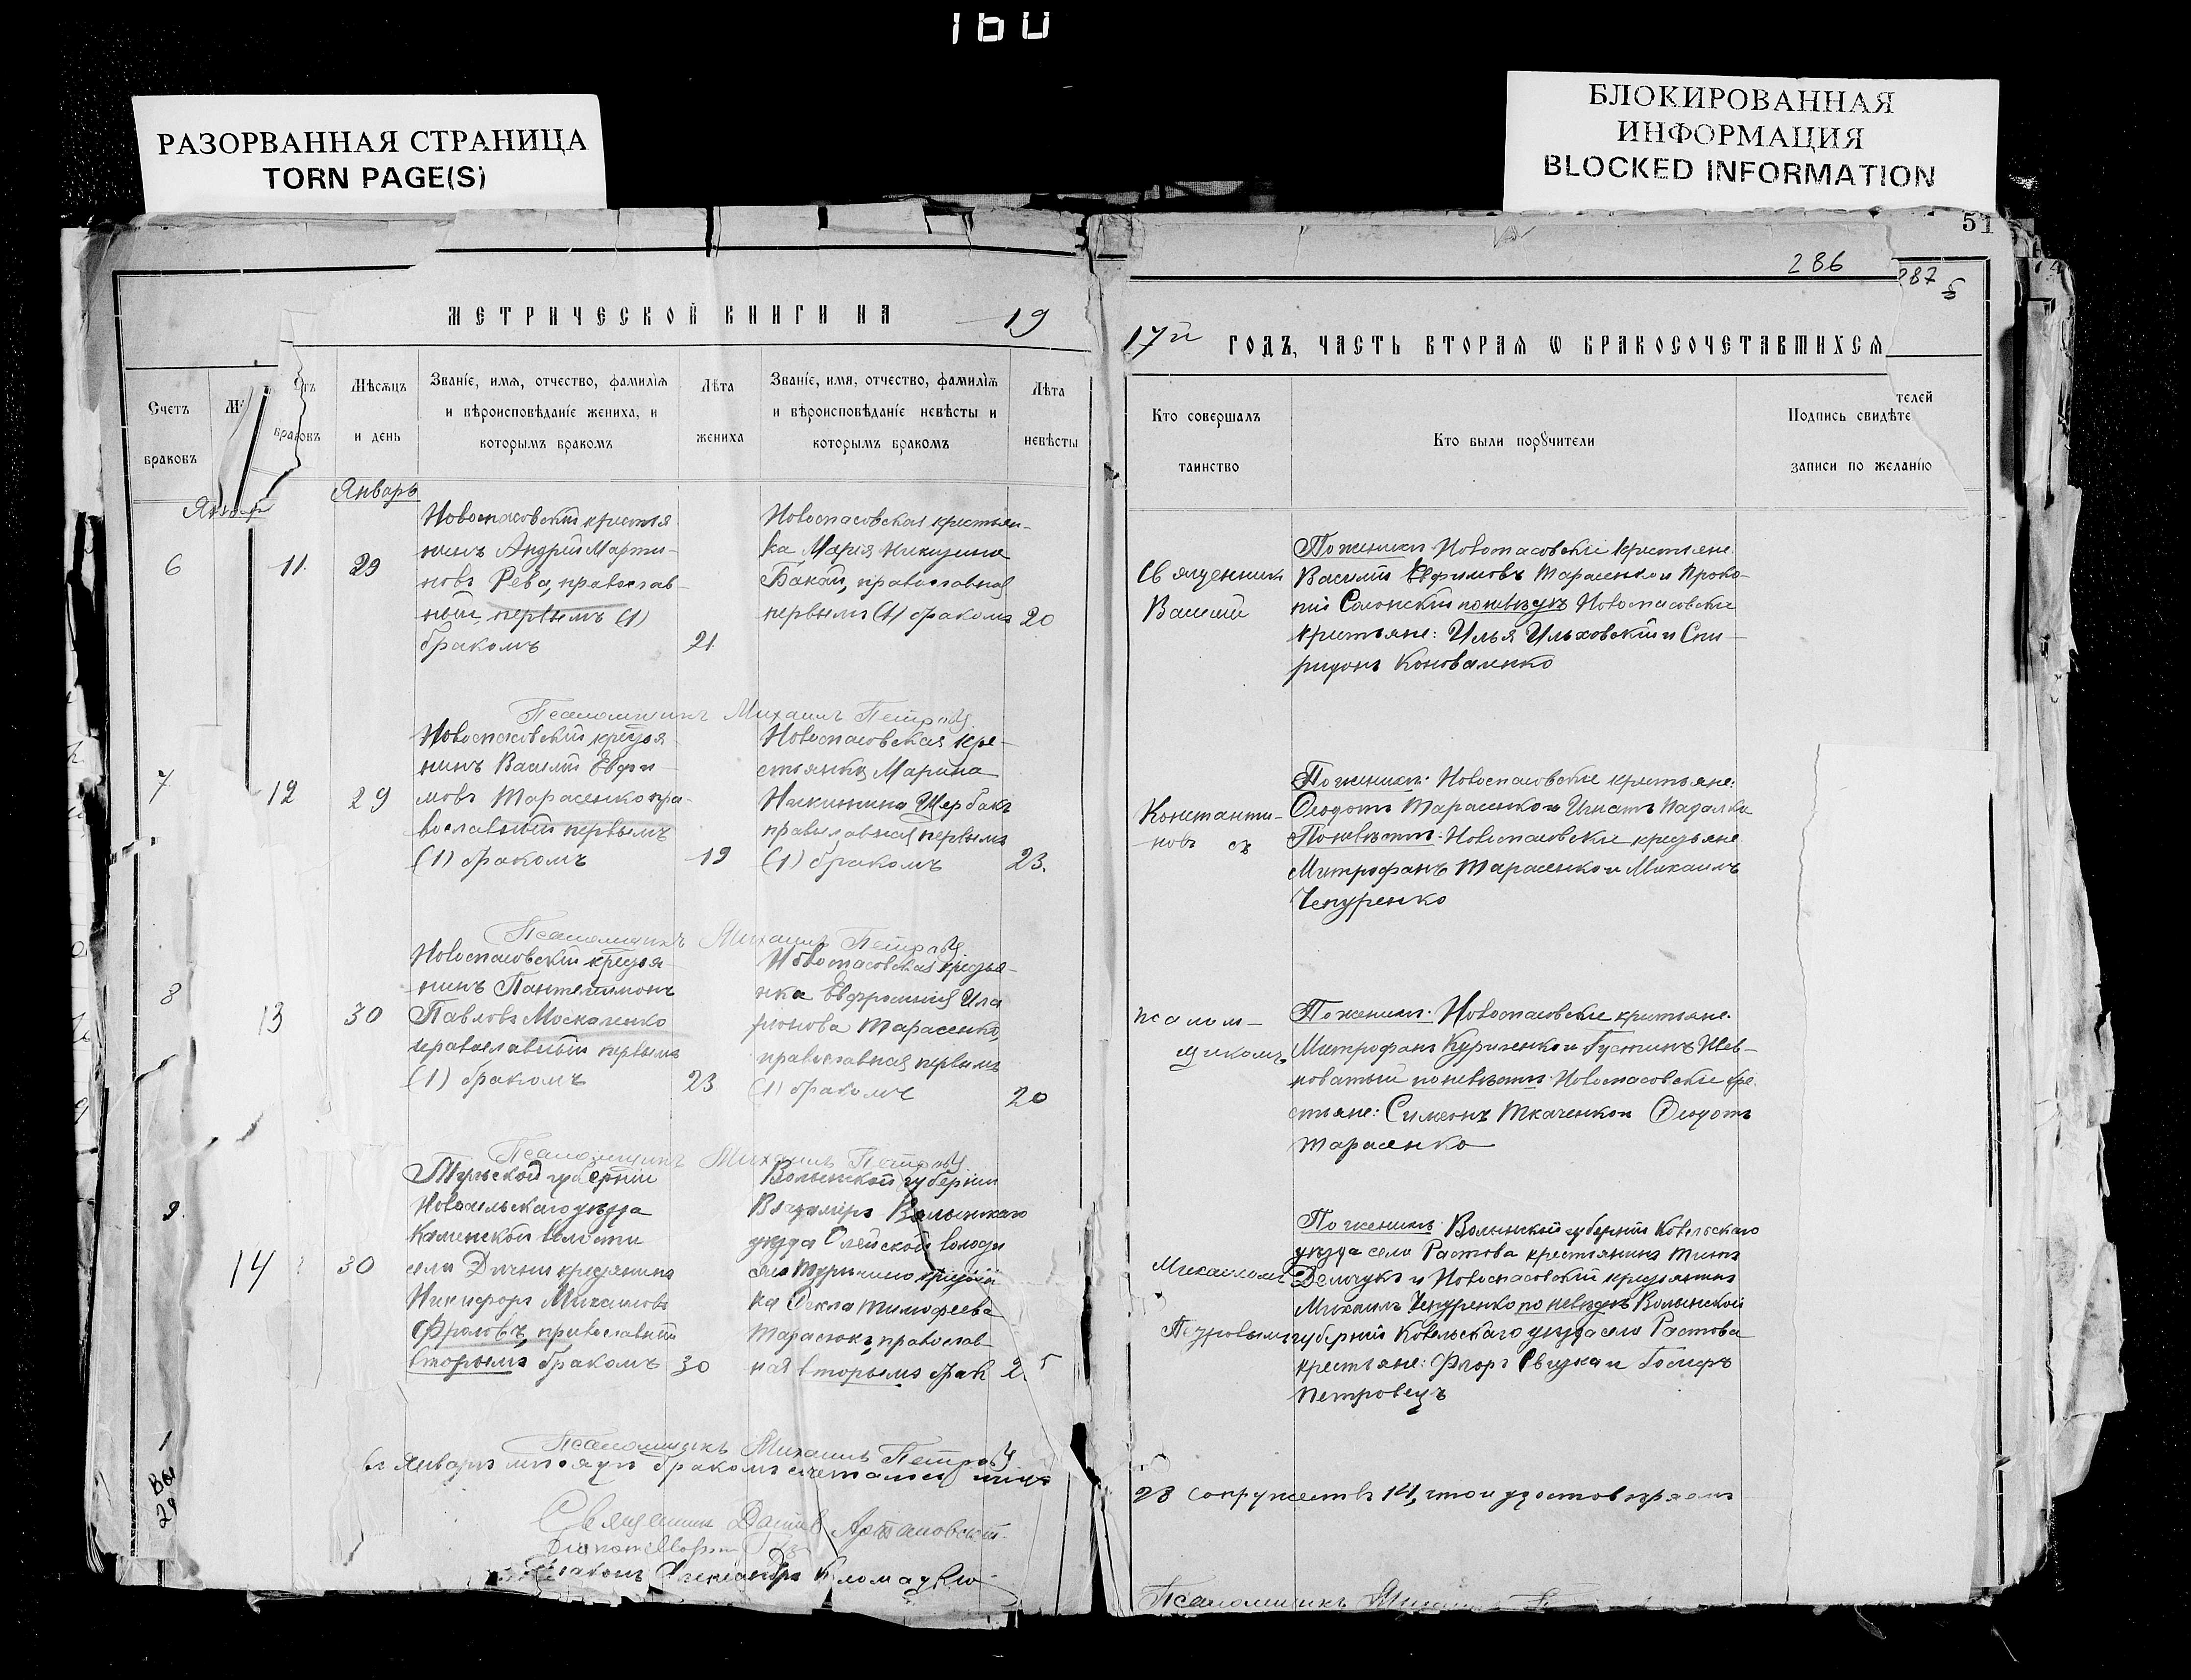 160
РАЗОРВАННАЯ СТРАНИЦА
TORN PAGE(S)
БЛОКИРОВАННАЯ
ИНФОРМАЦИЯ
BLOCKED INFORMATION
51
286
287
МЕТРИЧЕСКОЙ КНИГИ НА 19
17й ГОДЪ, ЧАСТЬ ВТОРАЯ Ѡ БРАКОСОЧЕТАВШИХСЯ
Счетъ
браковъ
браковъ
Мѣсяцъ
и день
Званіе, имя, отчество, фамилія
и вѣроисповѣданіе жениха, и
которымъ бракомъ
Лѣта
жениха
Званіе, имя, отчество, фамилія
и вѣроисповѣданіе невѣсты и
которымъ бракомъ
Лѣта
невѣсты
Кто совершалъ
таинство
Кто были поручители
телей
Подпись свидѣте
записи по желанію
Январь
6
11
29
Новоспасовскій крестья
нинъ Андрей Марти-
новъ Рева, православ-
ный первымъ (1)
бракомъ
21
Новоспасовская крестьян-
ка Марія Никитина
Бакай, православная
первымъ (1) бракомъ
20
Священник
Василий
По женихѣ Новоспасовскіе крестьяне
Василій Евфимовъ Тарасенко и Проко-
пій Солонскій по невѣстѣ Новоспасовскіе
крестьяне: Илья Ильховскій и Спи-
ридонъ Коноваленко
Псаломщикъ Михаилъ Петровъ
7
12
29
Новоспасовскій крестья
нинъ Василій Евфи-
мовъ Тарасенко пра-
вославный первымъ
(1) бракомъ
19
Новоспасовская кре-
стьянка Марина
Никитина Щербакъ
православная первымъ
(1) бракомъ
23.
Константи-
новъ съ
По женихѣ: Новоспасовскіе крестьяне:
Ѳеодотъ Тарасенко и Игнатъ Падалка
По невѣстѣ: Новоспасовскіе крестьяне
Митрофанъ Тарасенко и Михаилъ
Чепуренко
Псаломщикъ Михаилъ Петровъ
8
13
30
Новоспасовскій крестья
нинъ Пантелимонъ
Павловъ Москаленко
православный первымъ
(1) бракомъ
23
Новоспасовская крестья-
нка Евфросинія Ила
ріонова Тарасенко,
православная первымъ
(1) бракомъ
20
псалом-
щикомъ
По женихѣ: Новоспасовскіе крестьяне
Митрофанъ Куриленко и Густинъ Шев-
коватый по невѣстѣ: Новоспасовскіе кре-
стьяне: Симеонъ Ткаченко и Ѳеодотъ
Тарасенко
Псаломщикъ Михаилъ Петровъ
9
14
30
Тульской губерніи
Новосильскаго уѣзда
Каменской волости
села Дични крестьянинъ
Никифоръ Михаиловъ
Фроловъ, православный
вторымъ бракомъ
30
Волынской губерніи
Владиміръ Волынскаго
уѣзда Олейской волости
село Туричино крестьян
ка Ѳекла Тимофеева
Тарасюкъ, православ-
ная вторымъ брак
25
Михаиломъ
Петровымъ
По женихѣ: Волынской губерніи Ковельскаго
уѣзда села Растова крестьянинъ
и Новоспасовскій крестьянинъ
Михаилъ Чепуренко по невѣстѣ Волынской
губерніи Ковельскаго уѣзда села Растова
крестьяне: и Іосифъ
Петровецъ
Псаломщикъ Михаилъ Петровъ
въ Январѣ мѣсяцѣ бракомъ сочетались лицъ
28 супружествъ 14, что и удостовѣряемъ
Священникъ
Діаконъ Александръ
Псаломщикъ